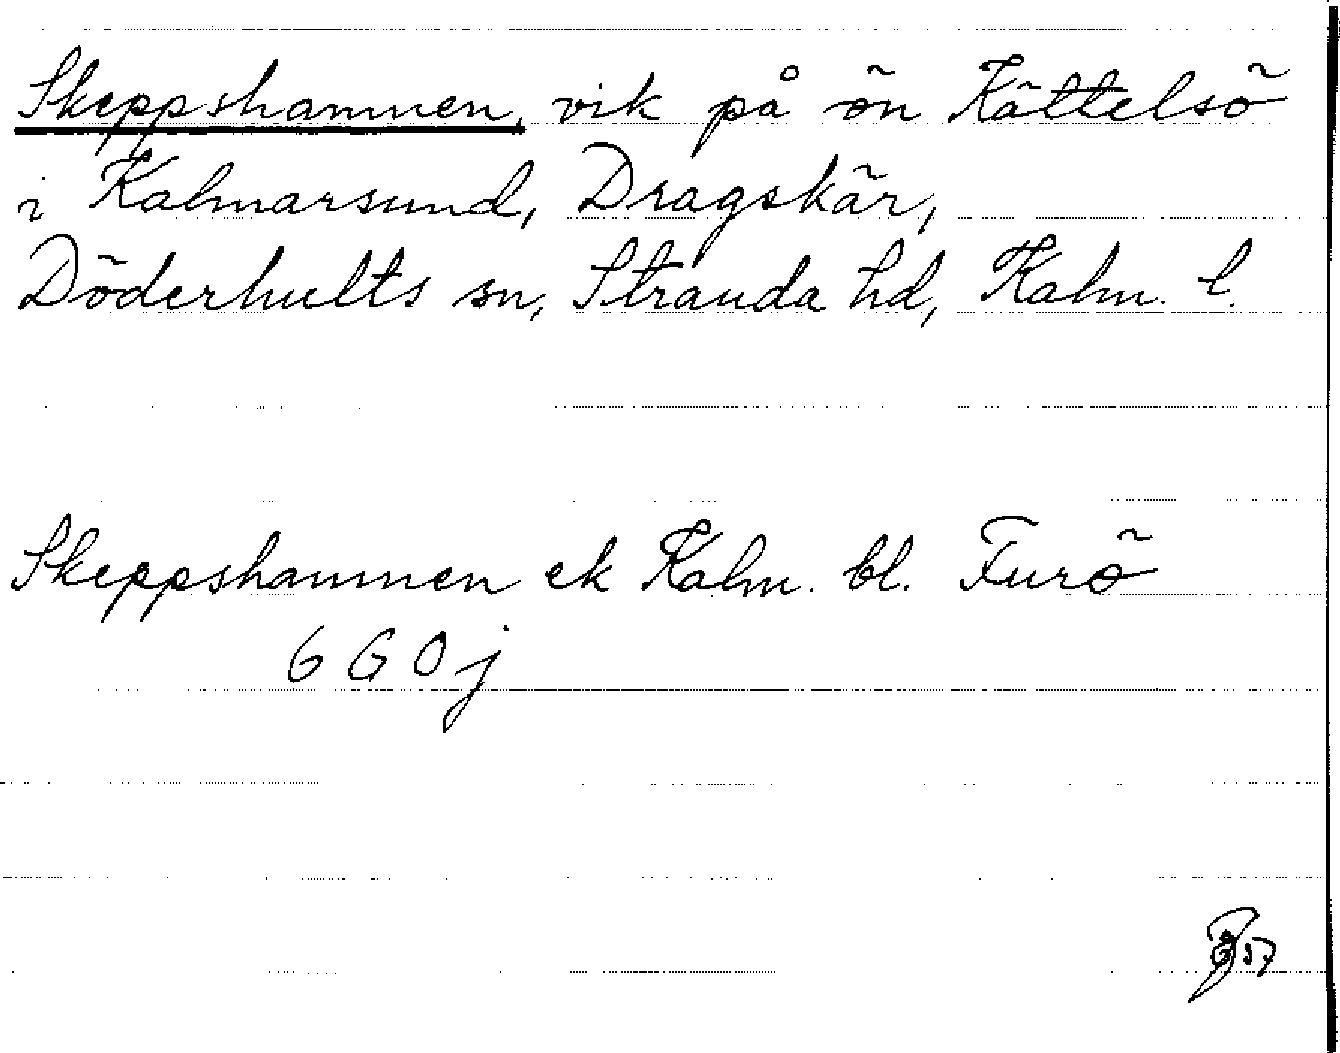 Skeppshamnen, vik på ön Kättelsö
i Kalmarsund, Dragskär,
Döderhults sn, Stranda hd, Kalm. l.
Skeppshamnen ek Kalm. bl. Furö
6 G 0 j
57